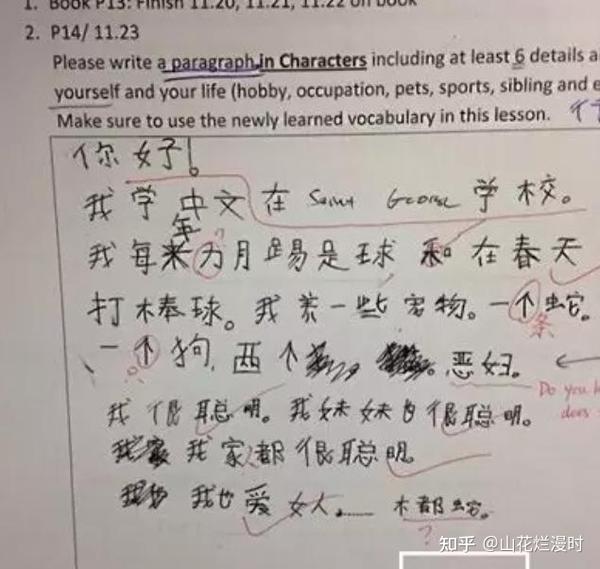 1. Book P13: Finish 11.20, 11.21, 11.22 on book
2. P14/ 11.23
Please write a paragraph in Characters including at least 6 details a
yourself and your life (hobby, occupation, pets, sports, sibling and e
Make sure to use the newly learned vocabulary in this lesson.
你好!
我学中文在 George 学校。
年
我每 为月踢是球和在春天
打棒球。我养一些宠物。一个蛇。
条
一个狗,两个 恶妇。
Do you
我很聪明。我妹妹也很聪明。
does
我家都很聪明。
我也爱女人...... 木都蛇。
?
知乎 @山花烂漫时